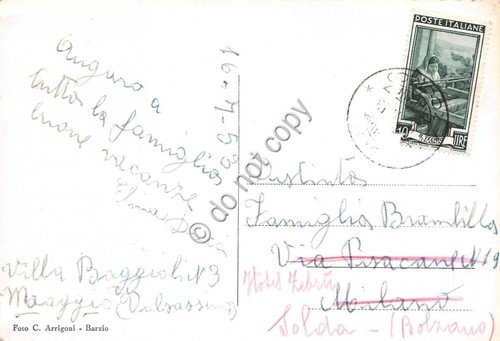 Auguro a
tutta la famiglia
buone vacanze
16-7-53
Villa Baggioli N 3
Maggio (Valsassina)
Foto C. Arrigoni - Barzio
POSTE ITALIANE
10
LIRE
do not copy
Distinta
Famiglia Brambilla
Via Pisacane N 19
Hotel Zebrù
Milano
Solda - (Bolzano)